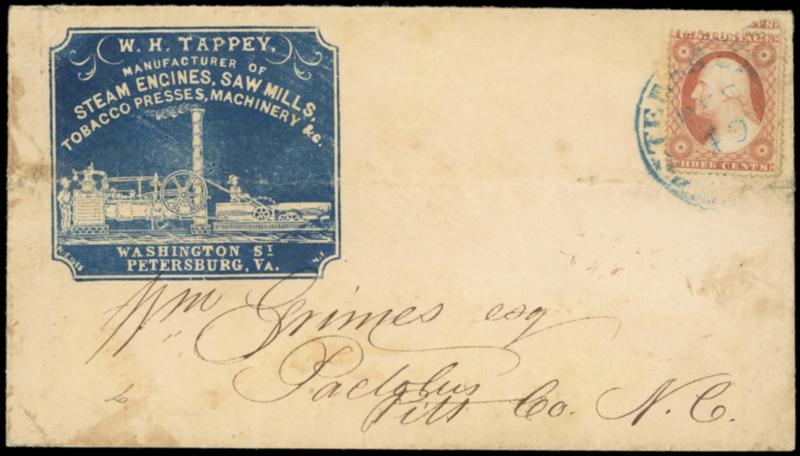 W. H. TAPPEY,
MANUFACTURER OF
STEAM ENGINES, SAW MILLS,
TOBACCO PRESSES, MACHINERY &c.
WASHINGTON ST
PETERSBURG, VA.
N.Y.
U.S. POSTAGE
THREE CENTS
19
Wm Grimes esq
Pactolus
Pitt Co. N.C.